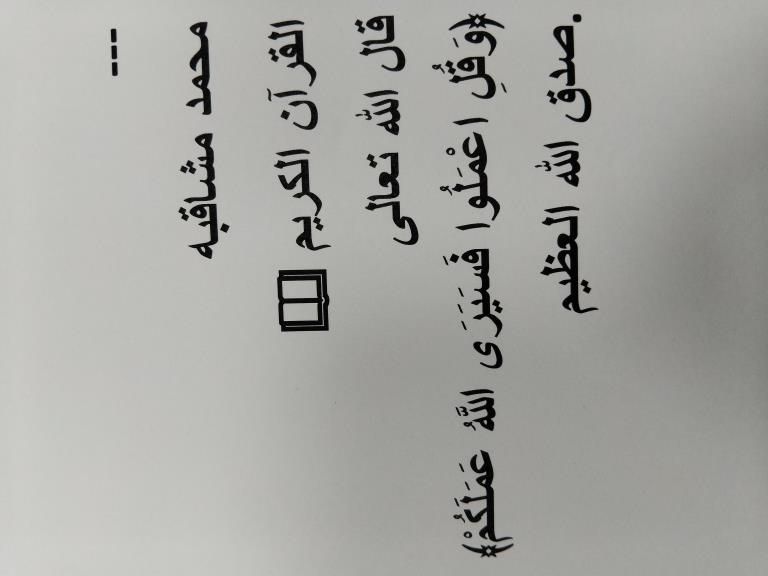 ---
محمد مشاقبه
القرآن الكريم 📖
قال الله تعالى
﴿وَقُلِ اعْمَلُوا فَسَيَرَى اللَّهُ عَمَلَكُمْ﴾
صدق الله العظيم.